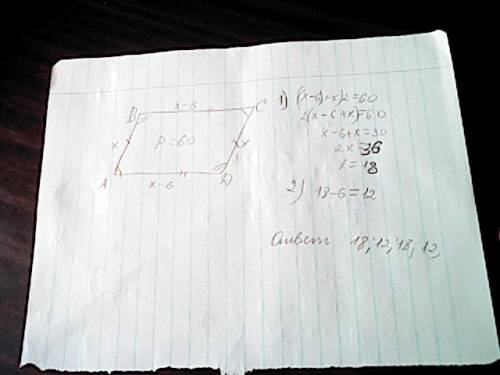 B x-6 C
x P=60 x
A x-6 D
1) (x-6)+x)2=60
2(x-6+x)=60
x-6+x=30
2x=36
x=18
2) 18-6=12
Ответ 18; 12; 18, 12,